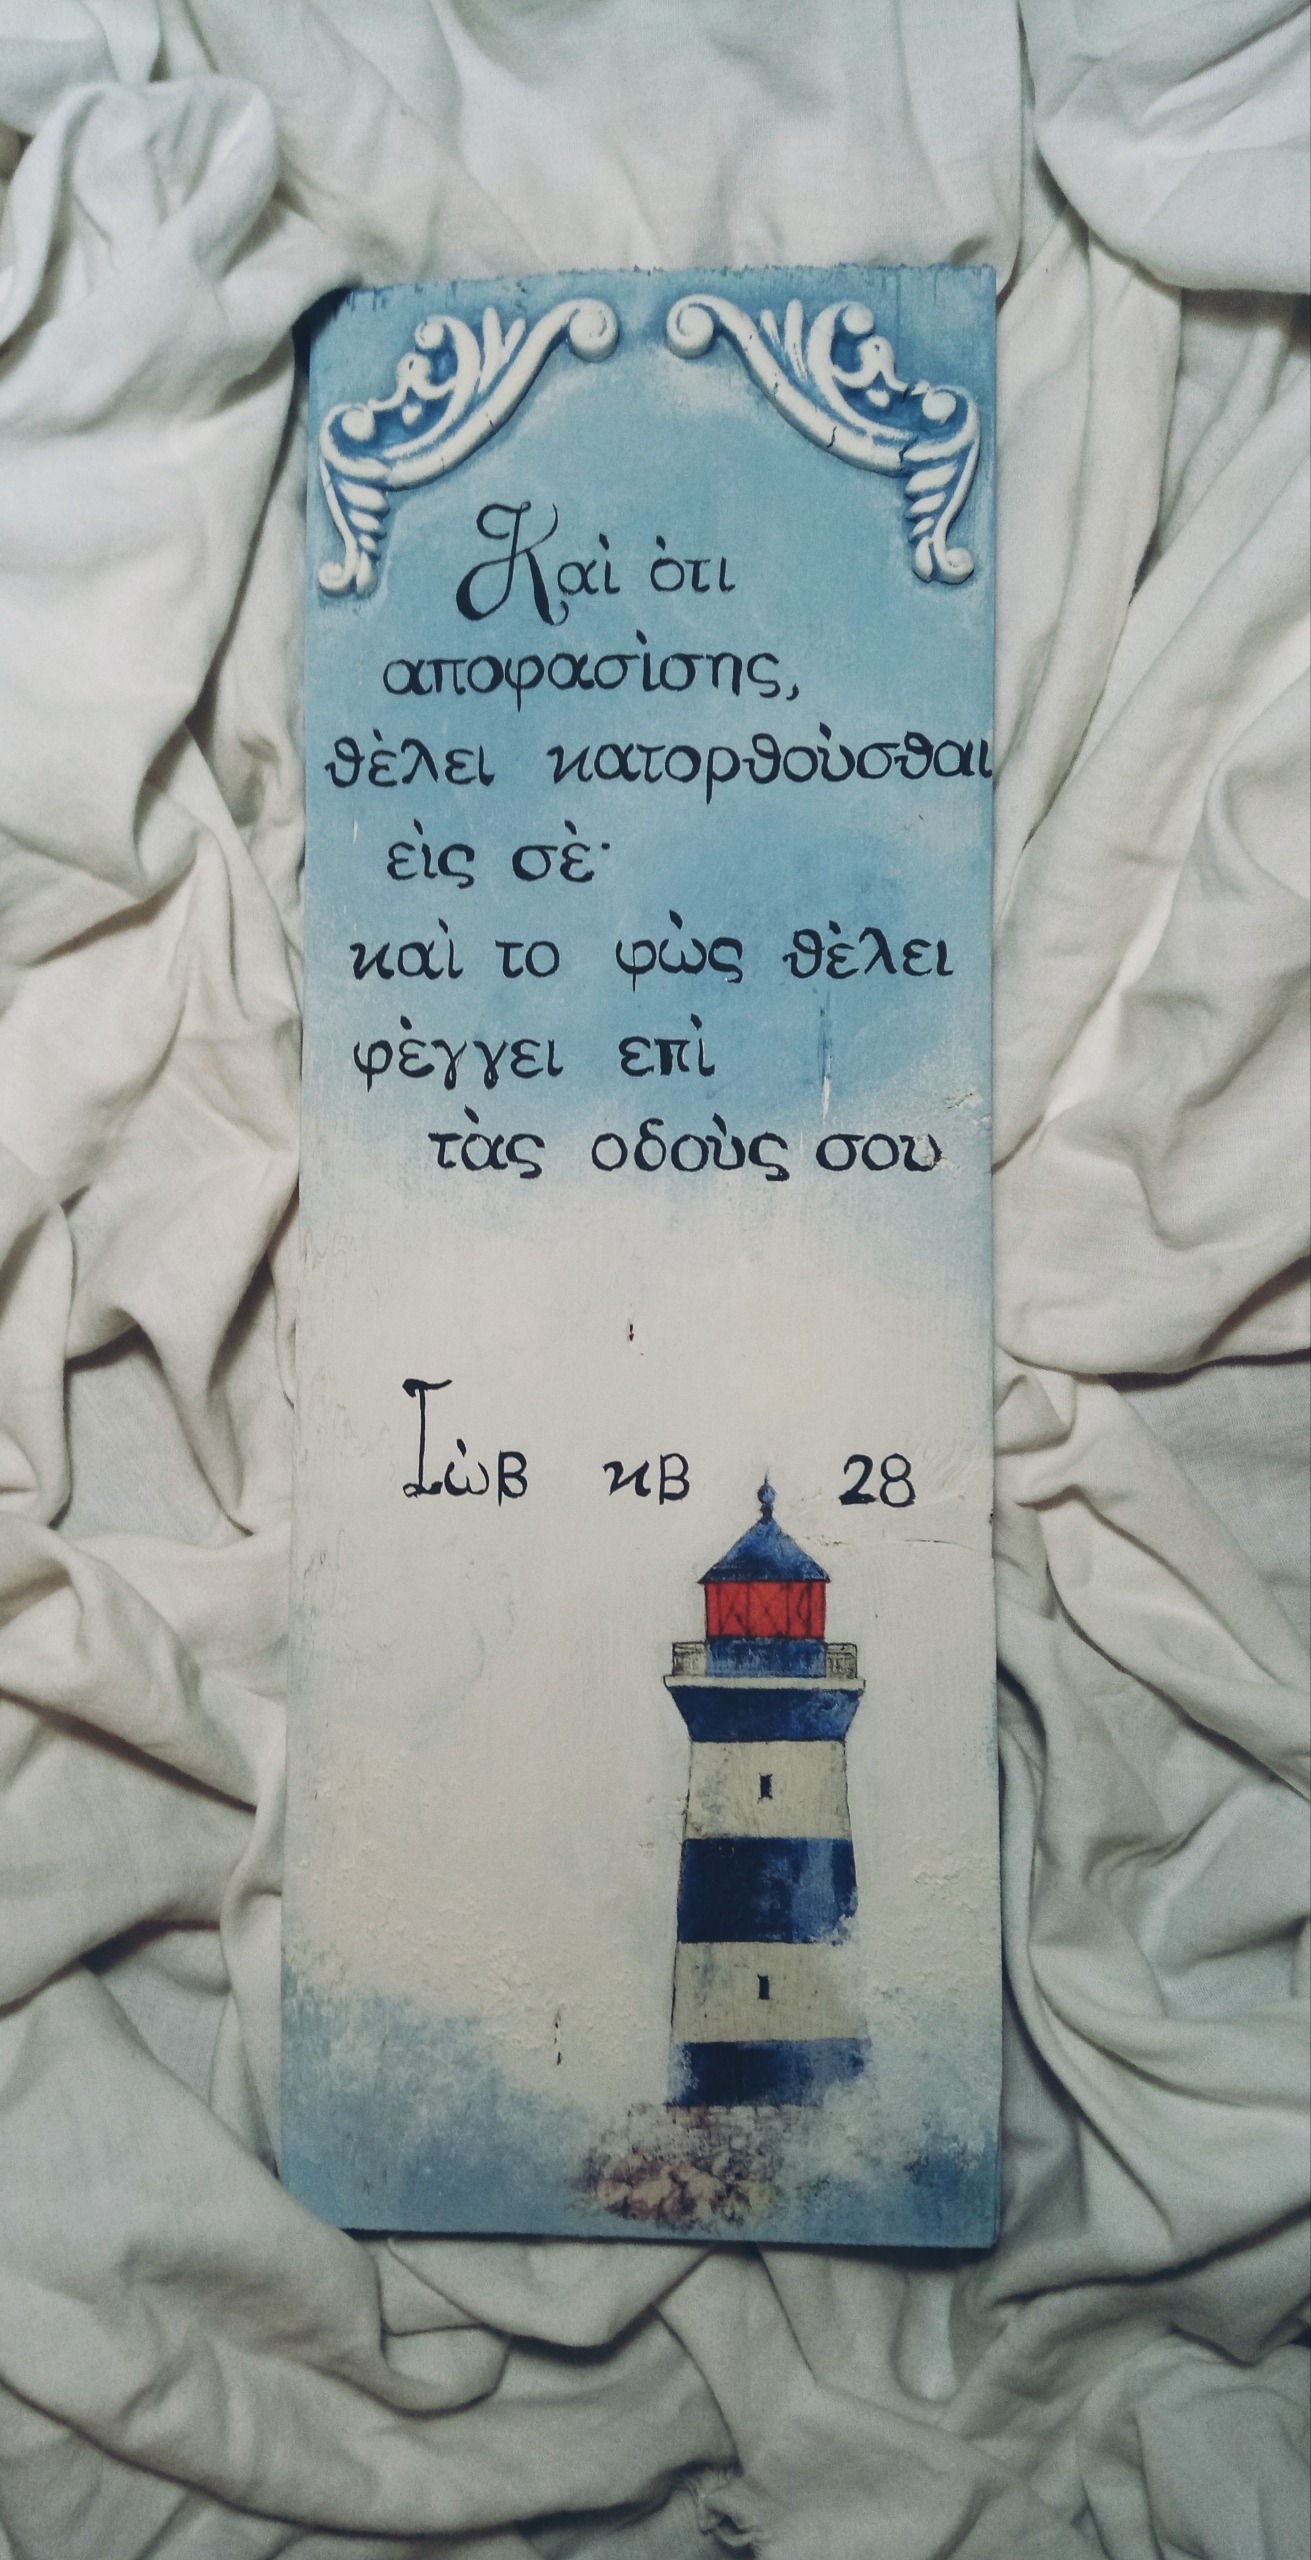 Καὶ ὁτι
αποφασὶσης,
θὲλει κατορθοὺσθαι
εὶς σὲ·
καὶ το φὼς θὲλει
φὲγγει επὶ
τὰς οδοὺς σου
Ιὼβ κβ 28